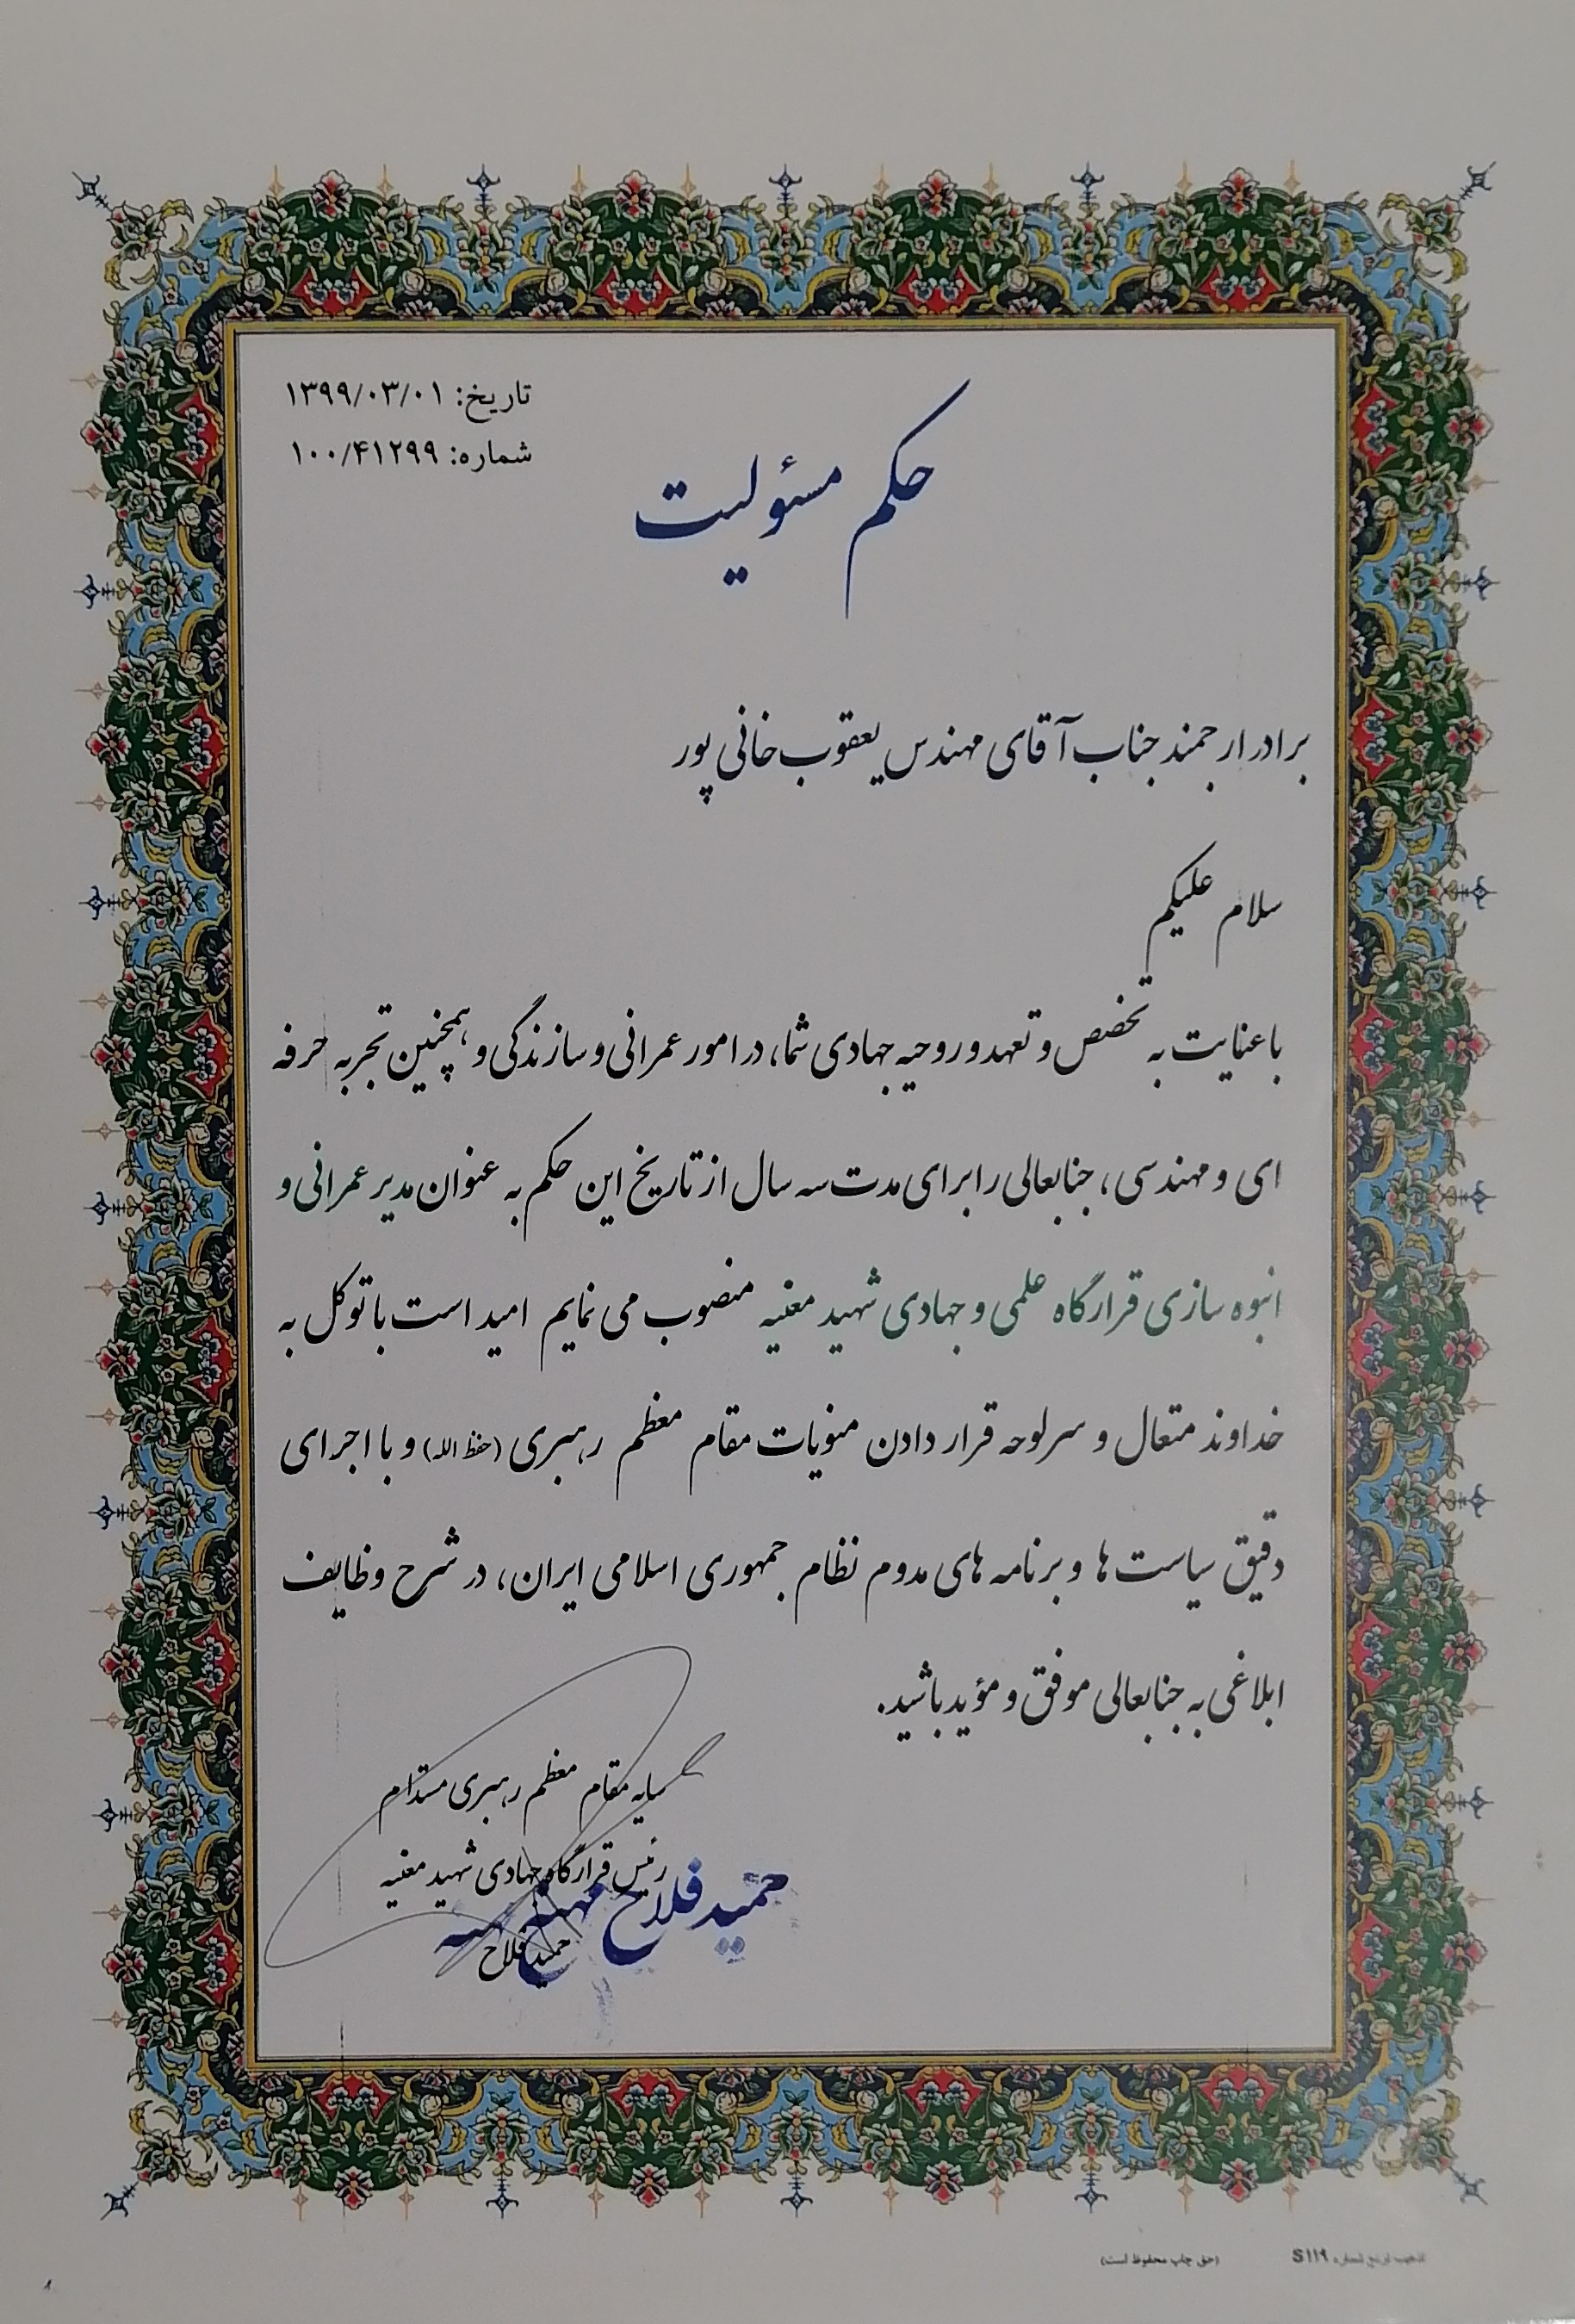 تاریخ: ۱۳۹۹/۰۳/۰۱
شماره: ۱۰۰/۴۱۲۹۹
حکم مسئولیت
برادر ارجمند جناب آقای مهندس یعقوب خانی پور
سلام علیکم
با عنایت به تخصص و تعهد و روحیه جهادی شما، در امور عمرانی و سازندگی و همچنین تجربه حرفه
ای و مهندسی، جنابعالی را برای مدت سه سال از تاریخ این حکم به عنوان مدیر عمرانی و
انبوه سازی قرارگاه علمی و جهادی شهید مغنیه منصوب می نمایم امید است با توکل به
خداوند متعال و سرلوحه قرار دادن منویات مقام معظم رهبری (حفظ الله) و با اجرای
دقیق سیاست ها و برنامه های مدوم نظام جمهوری اسلامی ایران، در شرح وظایف
ابلاغی به جنابعالی موفق و مؤید باشید.
سایه مقام معظم رهبری مستدام
رئیس قرارگاه جهادی شهید مغنیه
حمید فلاح
حمید فلاح
(حق چاپ محفوظ است)
شماره S۱۱۹